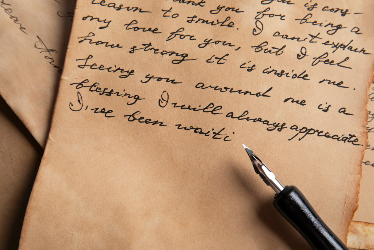 thank you for is cons-
reason to smile. I can't explain
my love for you, but I feel
how strong it is inside me.
Seeing you around me is a
blessing I will always appreciate.
I've been waiti